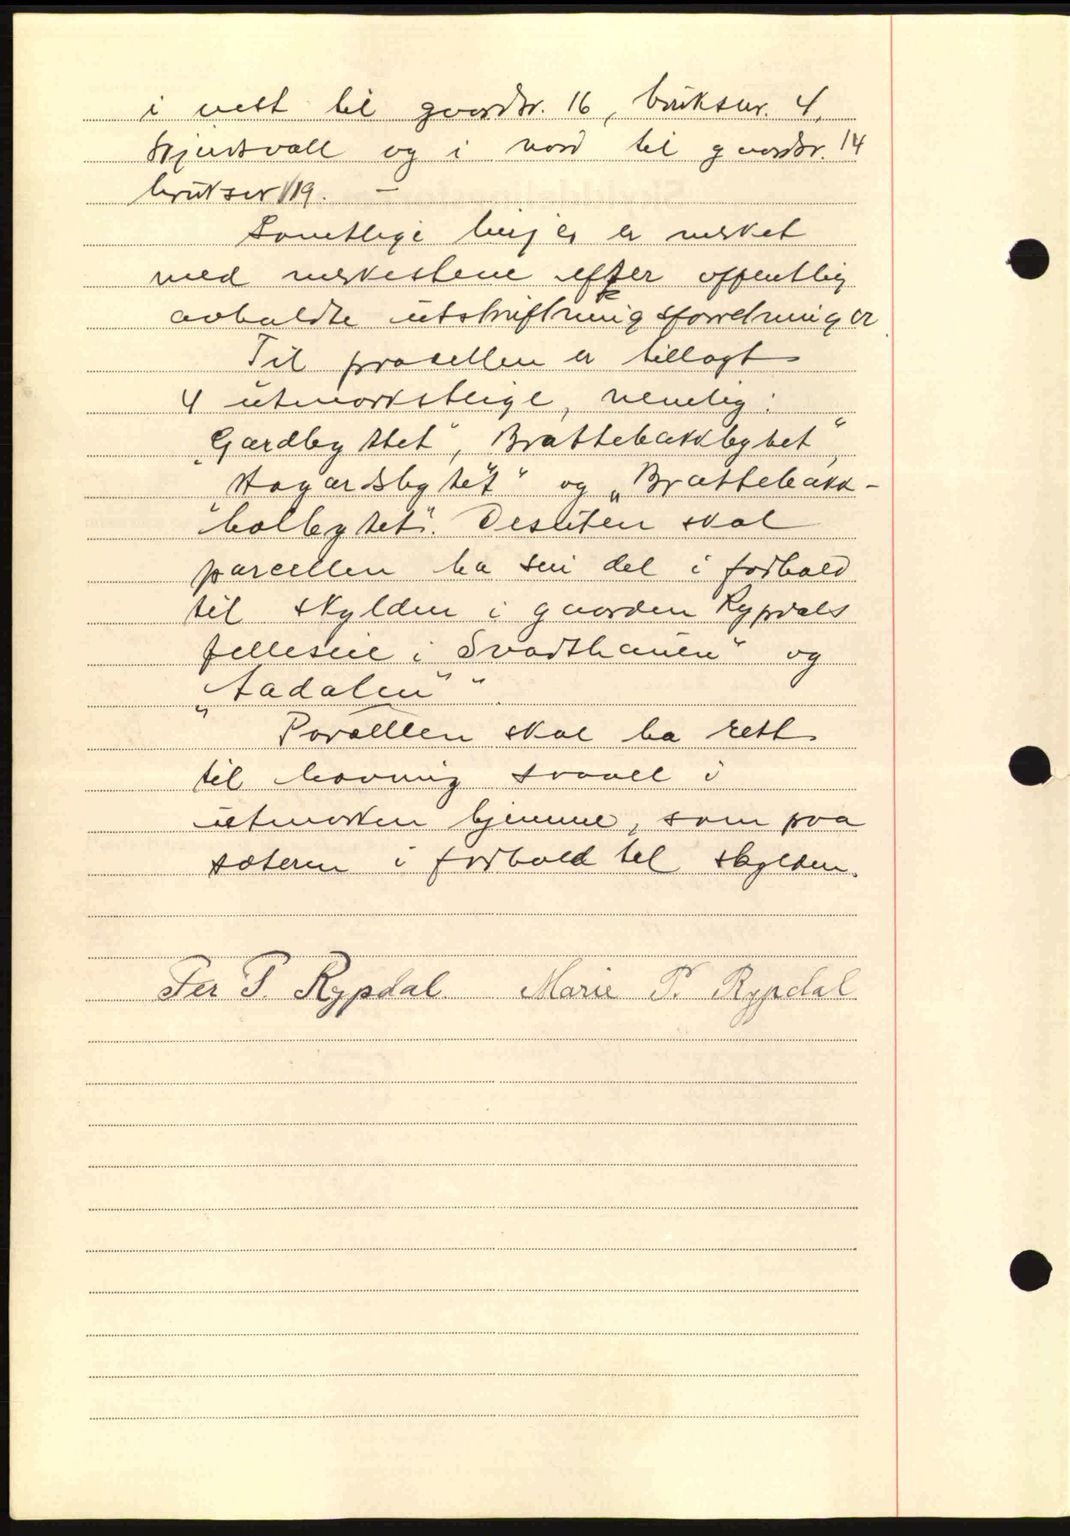 i vest til gaardsr. 16, bruksnr. 4,
og i nord til gaardsr. 14
bruksnr 19. –
Samtlige linjer er merket
med merkestene efter offentlig
avholdte utskiftningsforretninger.
Til parsellen er tillagt
4 utmarksteige, nemlig:
„Gardbythet", „Brattebakkbythet",
og „Brattebakk-
holbythet". Desuten skal
parcellen ha sin del i forhold
til skylden i gaarden Rypdals
felleseie i Svartshauen" og
„Aadalen".
Parcellen skal ha rett
til havning saavel i
utmarken hjemme, som paa
sæteren i forhold til skylden.
Per P. Rypdal Marie P. Rypdal